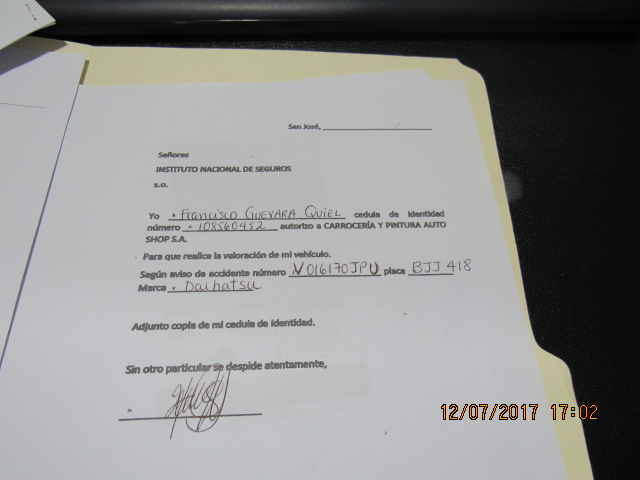 San José,
Señores
INSTITUTO NACIONAL DE SEGUROS
S.O.
Yo Francisco GUEVARA QUIEL cedula de identidad
número 108560452 autorizo a CARROCERÍA Y PINTURA AUTO
SHOP S.A.
Para que realice la valoración de mi vehículo.
Según aviso de accidente número V016170JPU placa BJJ 418
Marca Daihatsu
Adjunto copia de mi cedula de identidad.
Sin otro particular se despide atentamente,
12/07/2017 17:02